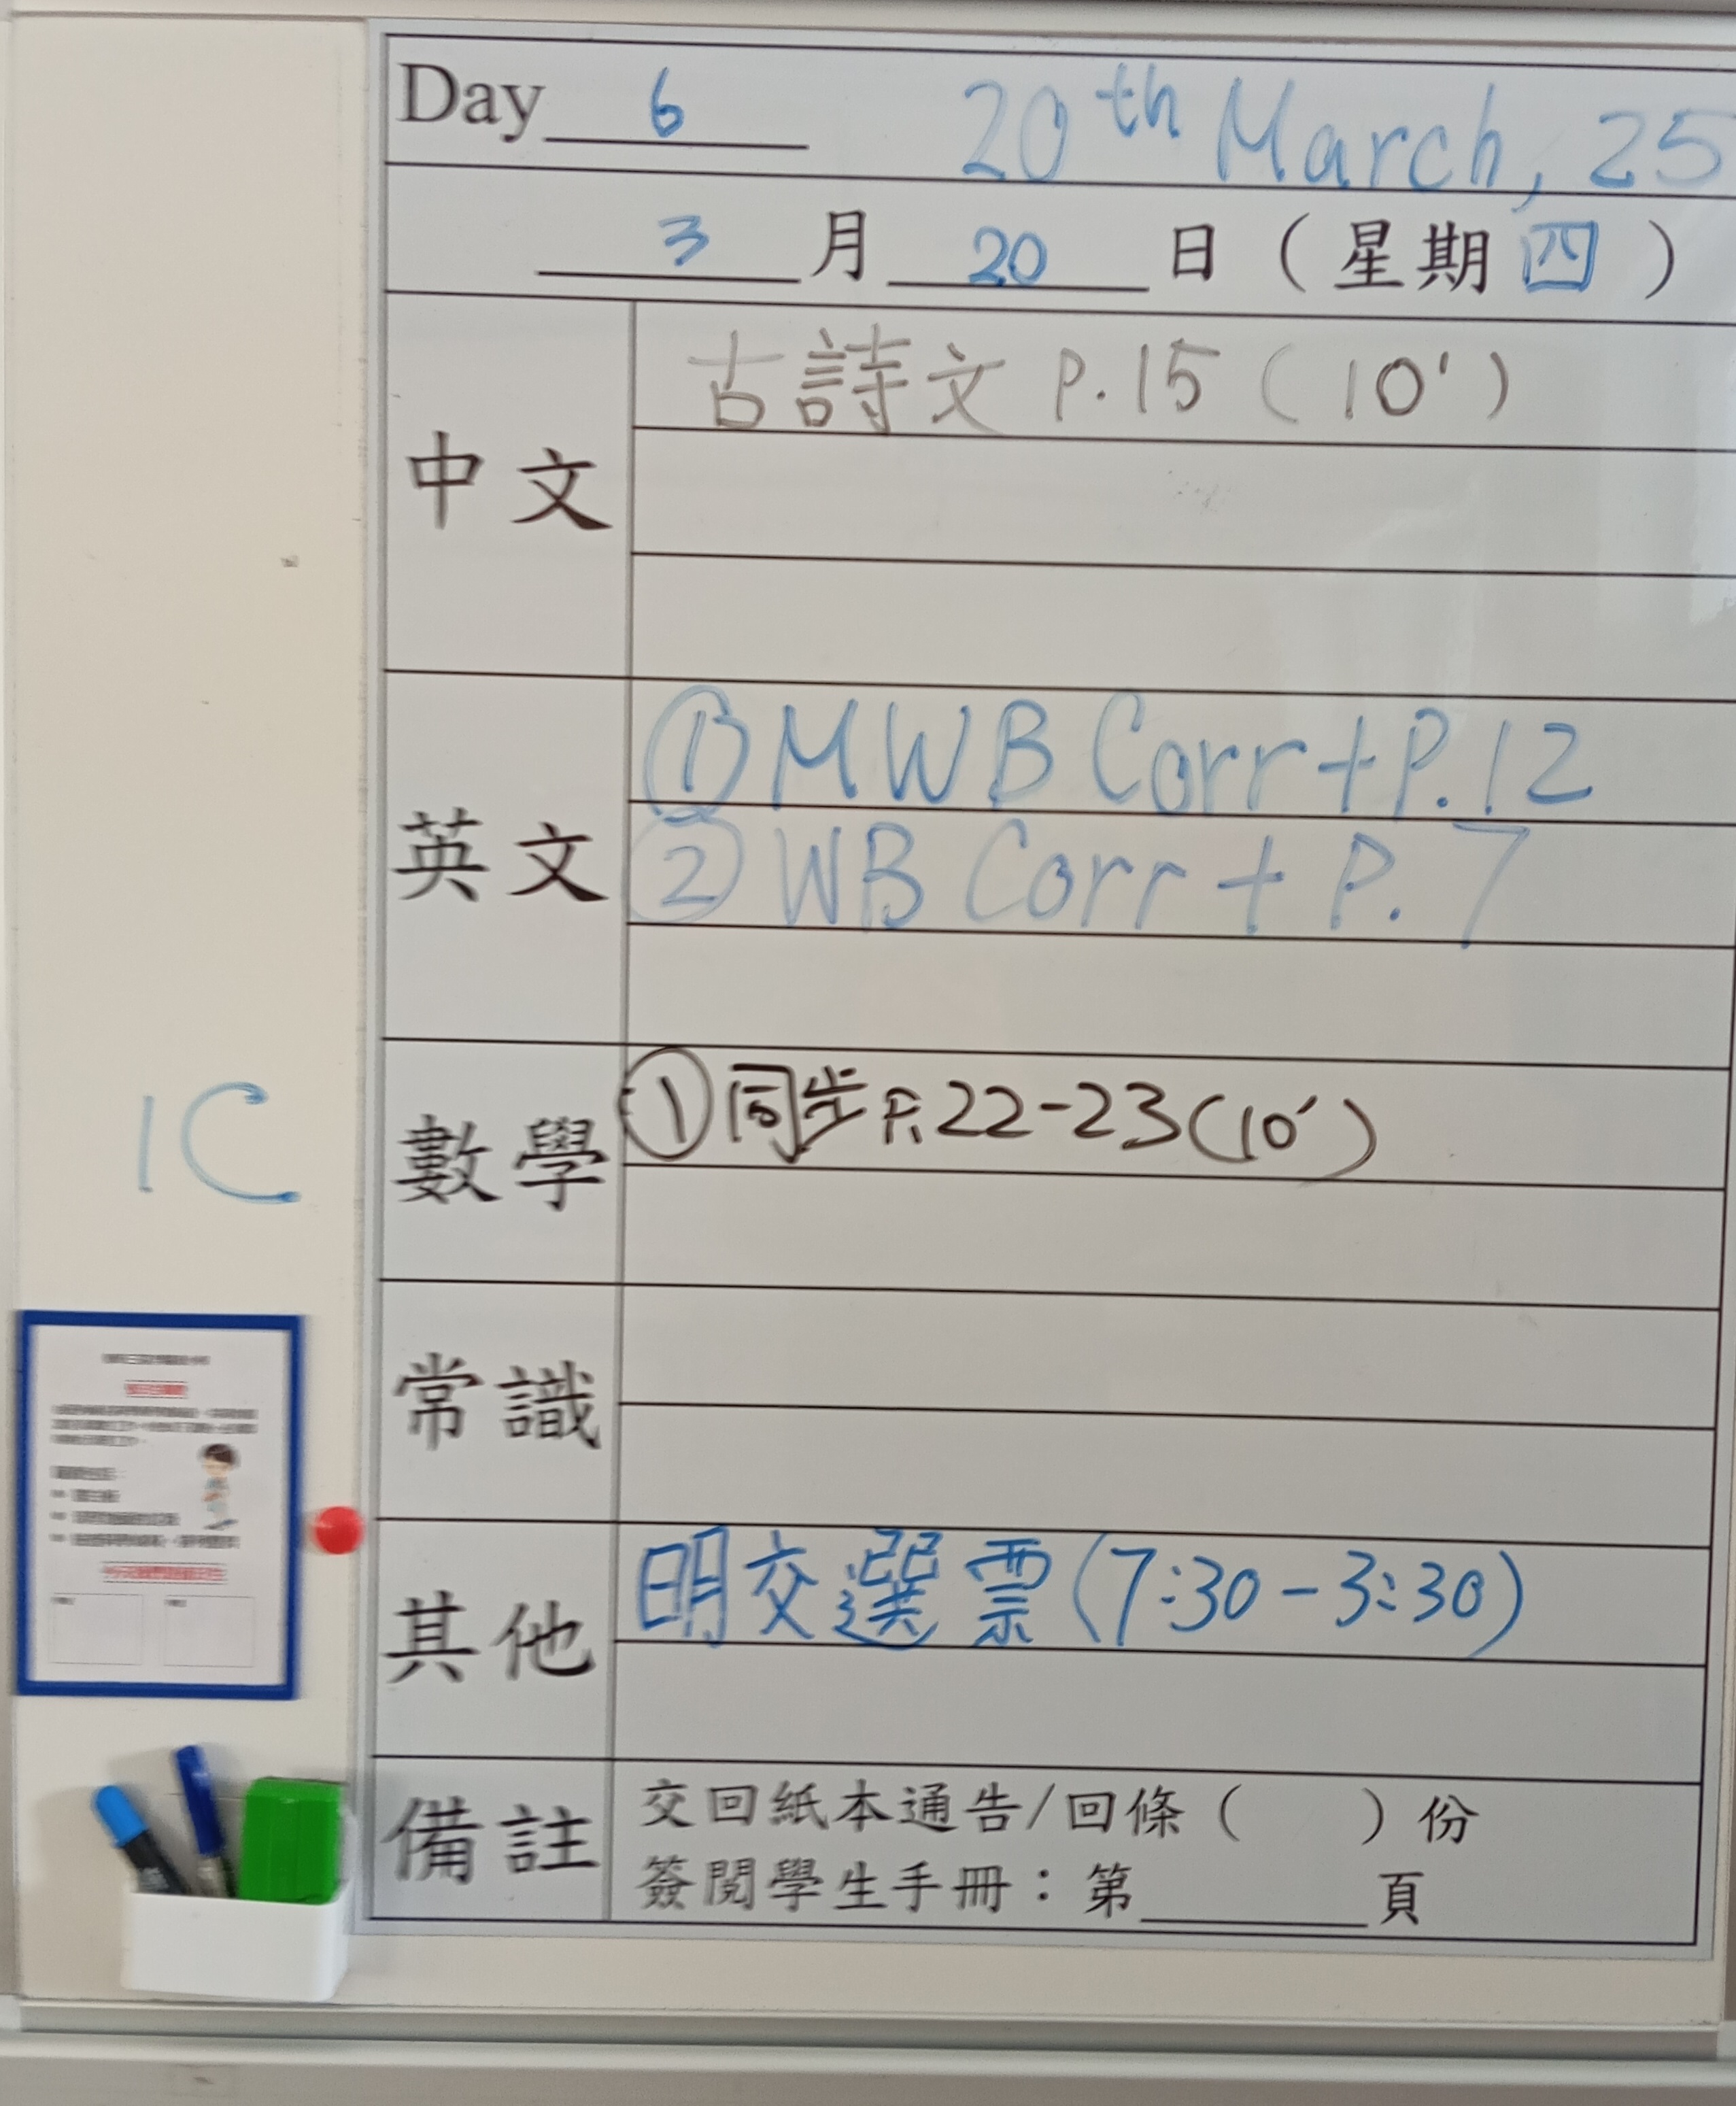 Day 6 20th March, 25
3 月 20 日 ( 星期 四 )
中文
古詩文 P.15 ( 10' )
英文
① MWB Corr + P.12
② WB Corr + P.7
數學
① 同步 P. 22-23 (10')
1C
常識
其他
明交選票 (7:30 - 3:30)
備註
交回紙本通告/回條 ( ) 份
簽閱學生手冊：第______頁